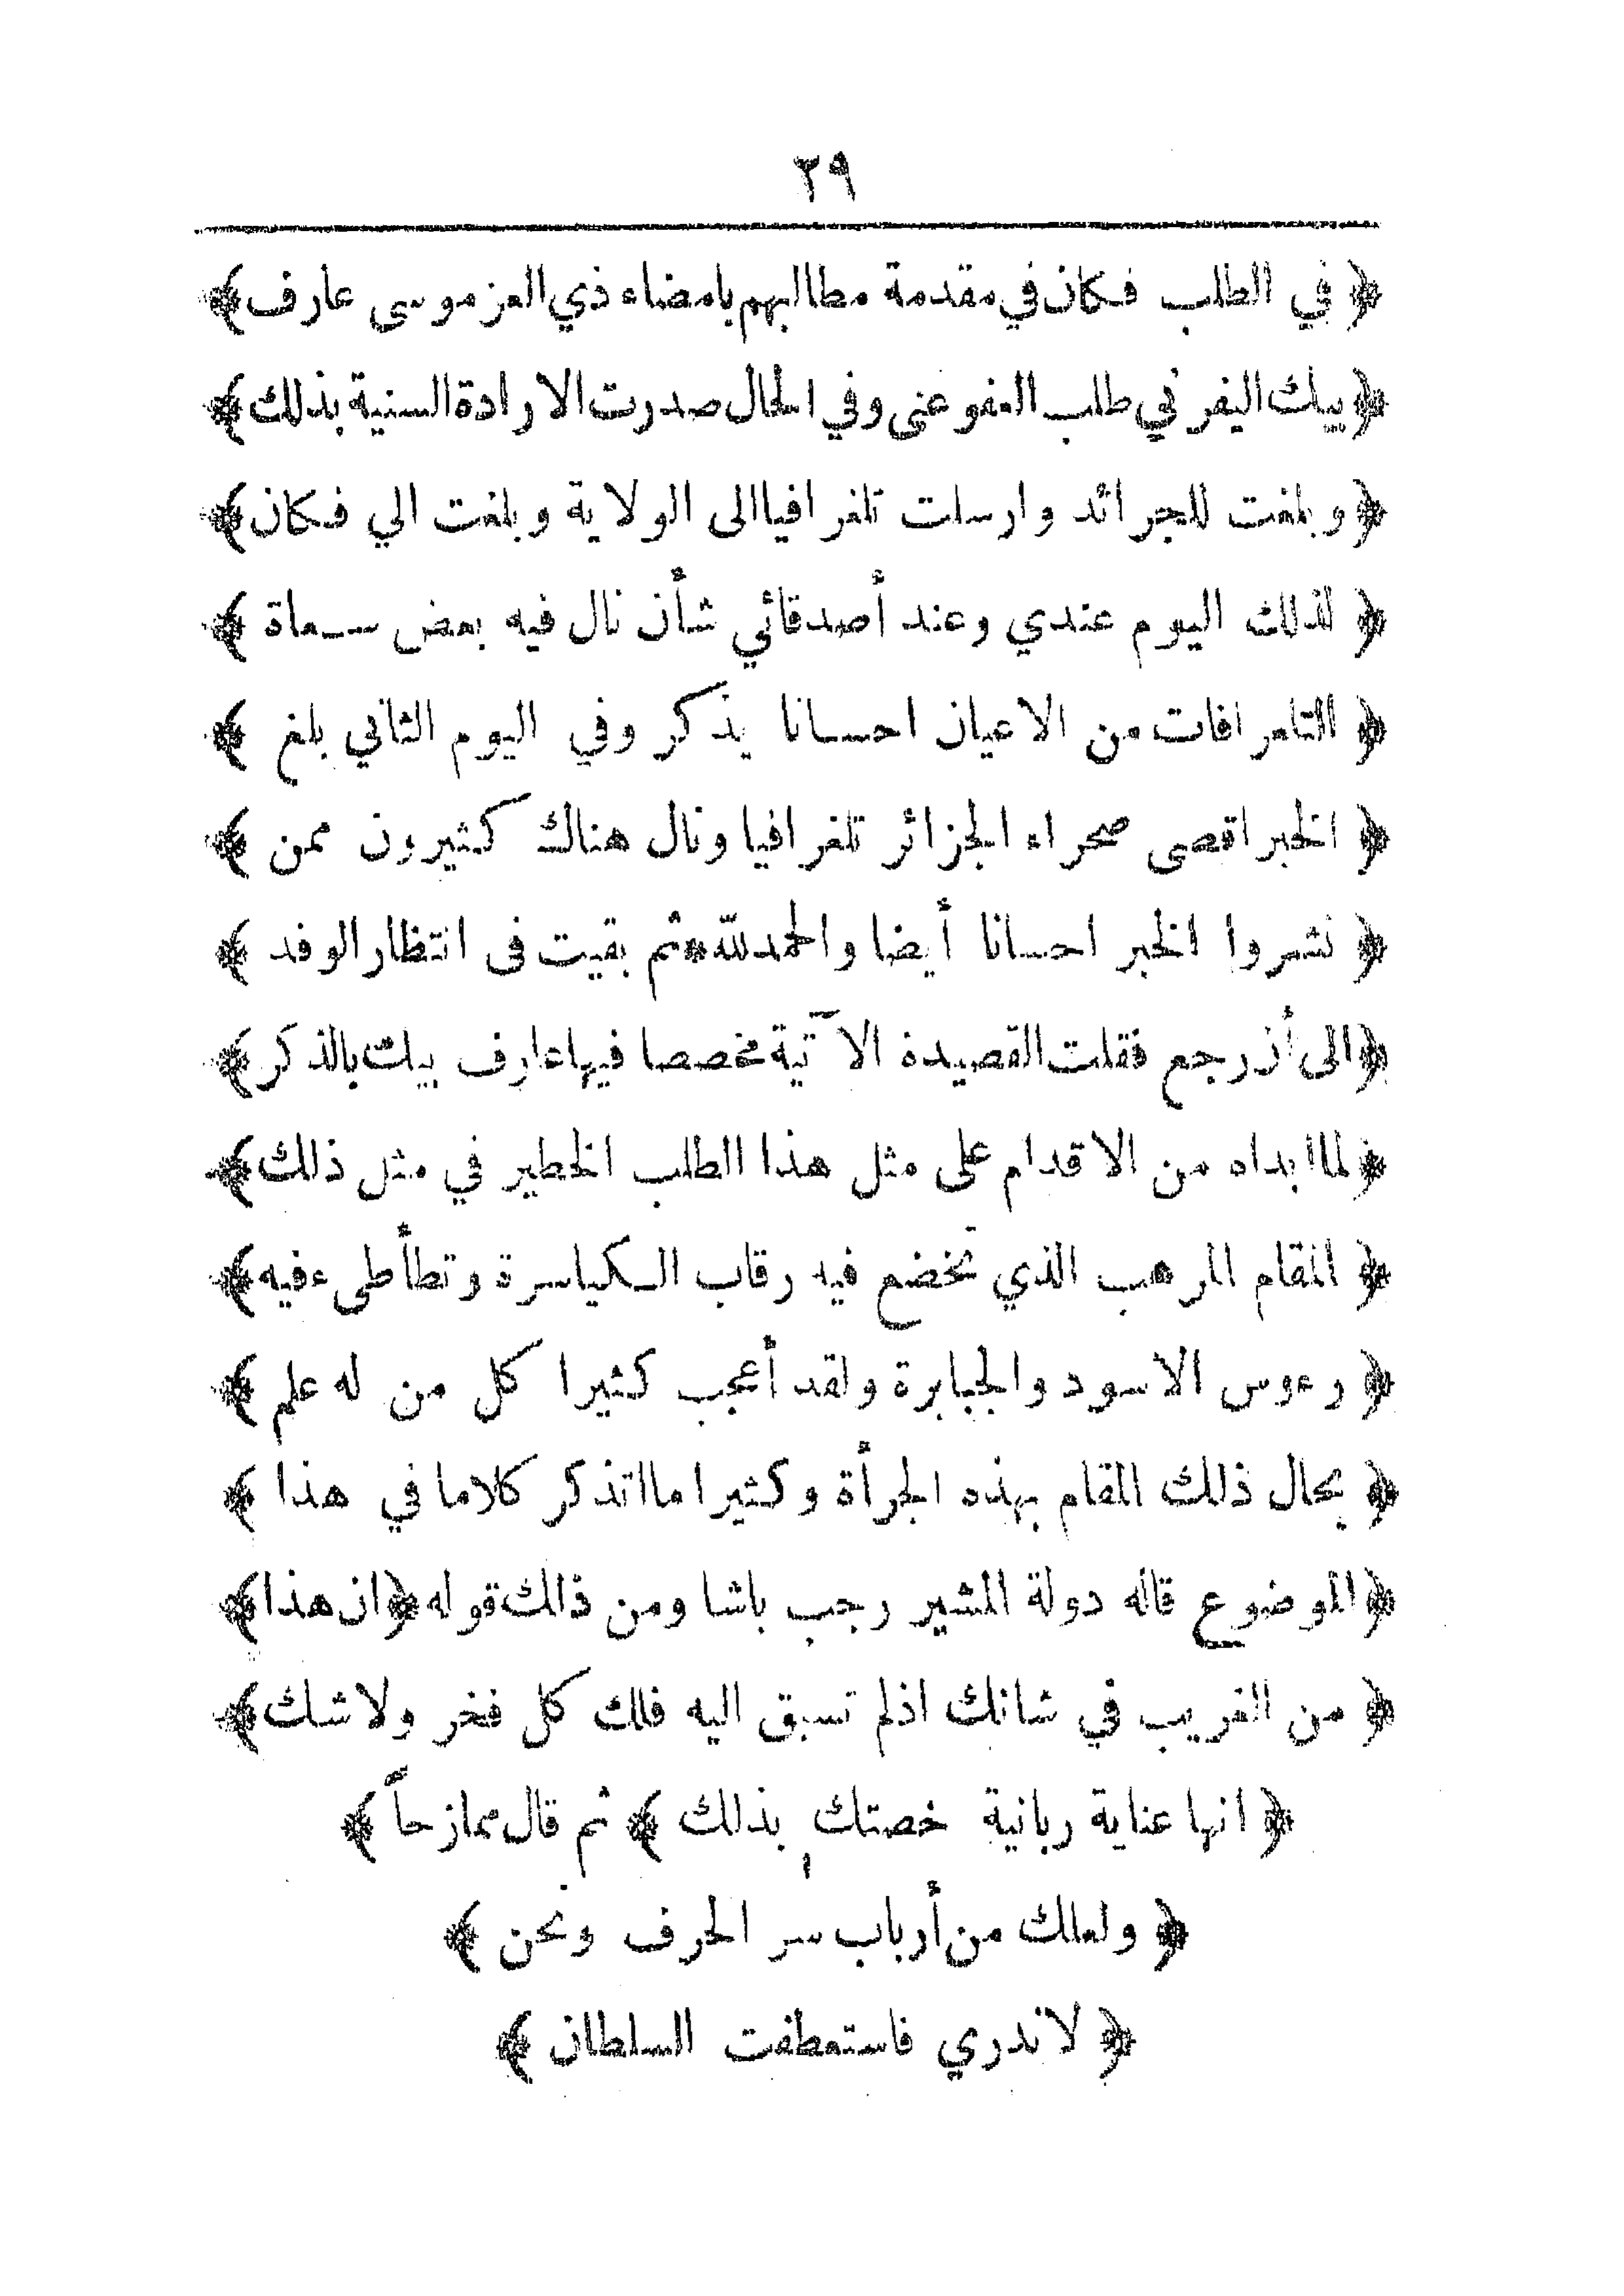 ٢٩
﴿ في الطلب فكان في مقدمة مطالبهم بامضاء ذي العز موسى عارف ﴾
﴿ بيك اليفر في طلب العفو عنى وفي الحال صدرت الارادة السنية بذلك ﴾
﴿ وبلغت للجرائد وارسلت تلغرافيا الى الولاية وبلغت الي فكان ﴾
﴿ لذلك اليوم عندي وعند أصدقائي شأن نال فيه بعض سعاة ﴾
﴿ التلغرافات من الاعيان احسانا يذكر وفي اليوم الثاني بلغ ﴾
﴿ الخبر اقصى صحراء الجزائر تلغرافيا ونال هناك كثيرون ممن ﴾
﴿ نشروا الخبر احسانا أيضا والحمد لله * ثم بقيت فى انتظار الوفد ﴾
﴿ الى أن رجع فقلت القصيدة الآتية مخصصا فيها عارف بيك بالذكر ﴾
﴿ لما ابداه من الاقدام على مثل هذا الطلب الخطير في مثل ذلك ﴾
﴿ المقام المرهب الذي تخضع فيه رقاب الكياسرة وتطأطىء فيه ﴾
﴿ رءوس الاسود والجبابرة ولقد أعجب كثيرا كل من له علم ﴾
﴿ بحال ذلك المقام بهذه الجرأة وكثيرا ما اتذكر كلاما في هذا ﴾
﴿ الموضوع قاله دولة المشير رجب باشا ومن ذلك قوله ﴿ ان هذا ﴾
﴿ من الغريب في شانك اذ لم تسبق اليه فلك كل فخر ولا شك ﴾
﴿ انها عناية ربانية خصتك بذلك ﴾ ثم قال ممازحاً ﴾
﴿ ولعلك من أرباب سر الحرف ونحن ﴾
﴿ لا ندري فاستعطفت السلطان ﴾